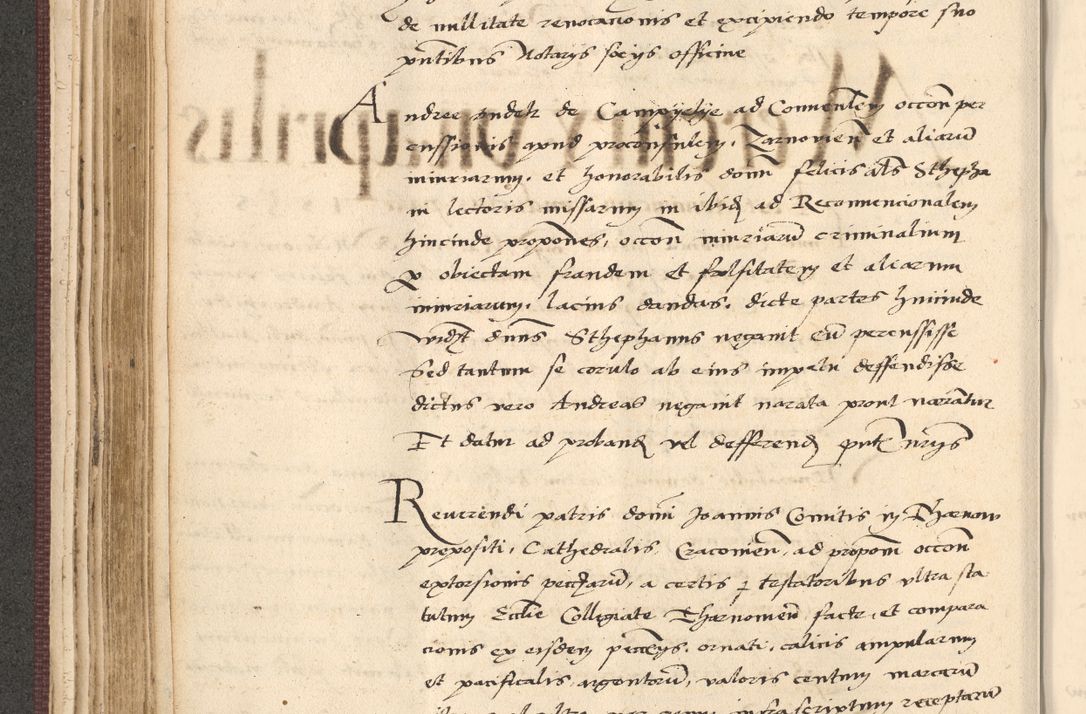 de nullitate revocacionis et excipiendo tempore suo
pntibus Notarys socys officine
Andree de ad Conventem occon per
cussionis apud proconsulem, Tarnovien et aliarum
iniuriarum, et honorabilis domi felicis als Stepha
ni lectoris missarum in ibid ad Reconvencionalem
hincinde propones, occon iniuriaru criminalium
obiectam fraudem et falsitatem et aliarum
iniuriarum, lacius dandas, dicte partes hincinde
dnus Sthephanus negavit eu percussisse
Sed tantum se corulo ab eius impetu deffendisse
dictus vero Andreas negavit narata prout narantur
Et datur ad proband vel defferend
Reverendi patris domi Joannis Comitis in Tharnow
prepositi, Cathedralis, Cracovien, ad propom occon
extorsionis a certis testatoribus ultra sta
tutum Ecclie Collegiate Tharnovien facte, et compara
cionis ex eisdem ornati, calicis ampularum
et pacificalis argentorum, valoris centum marcaru
infrascriptum receptaru